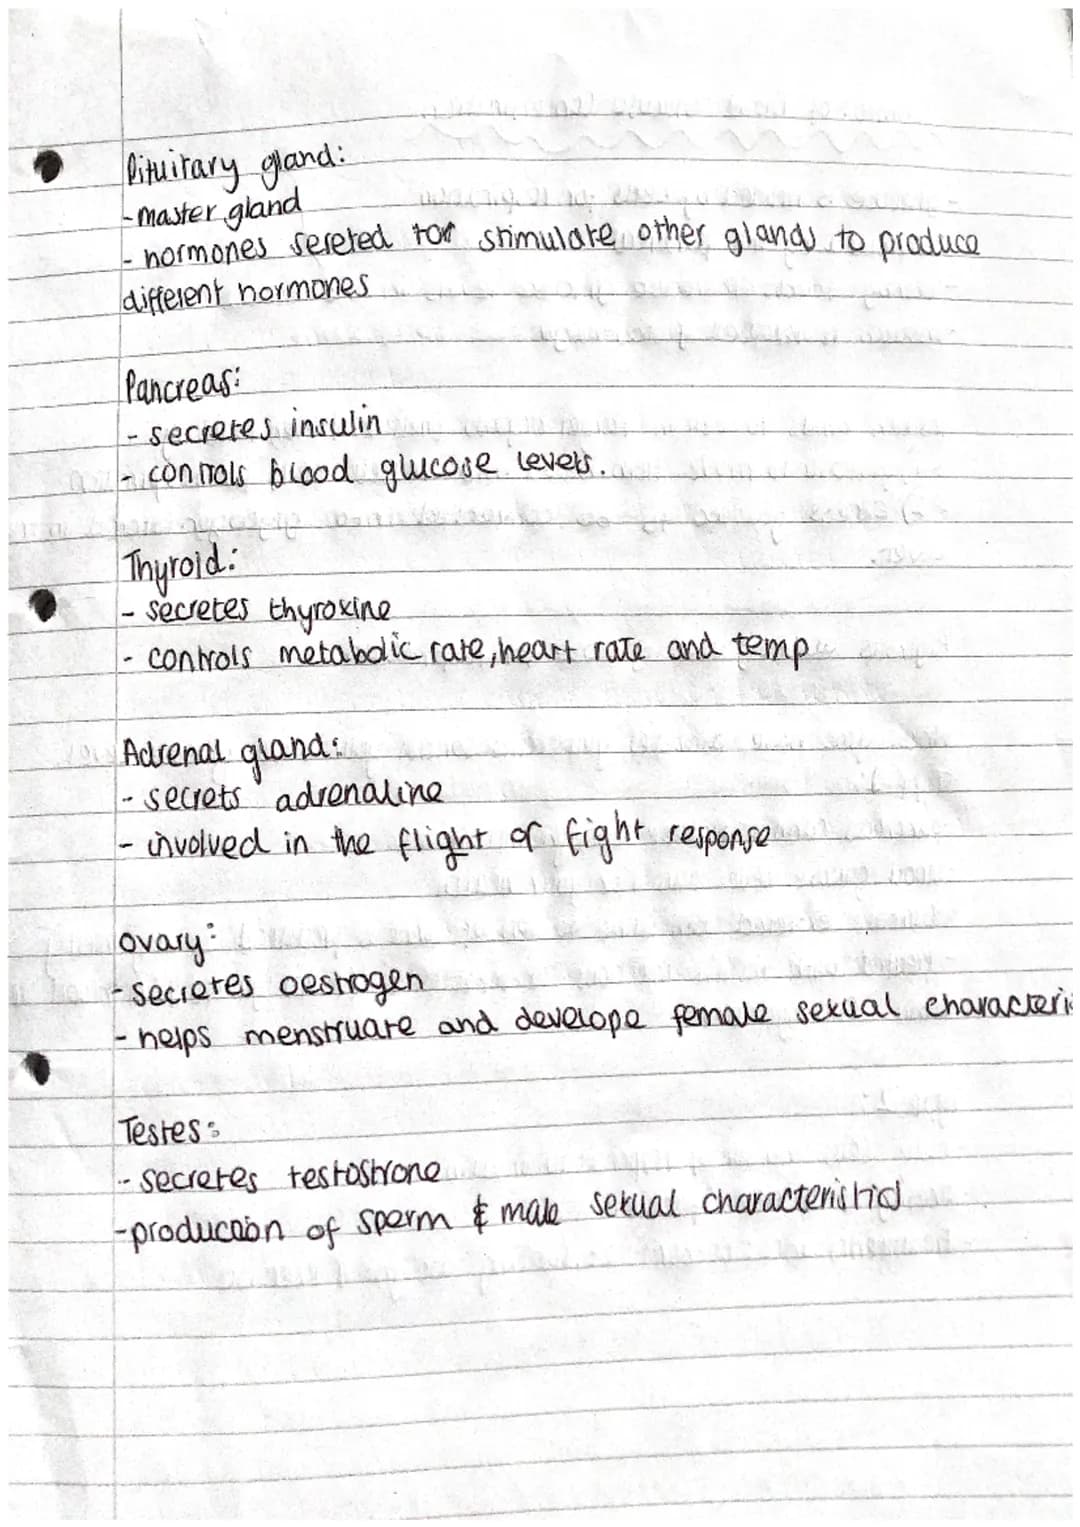 Pituitary gland:
- master gland
- hormones sereted for stimulate other glands to produce
different hormones
Pancreas:
- secretes insulin
- controls blood glucose levels.
Thyroid:
- secretes thyroxine
- controls metabolic rate, heart rate and temp
Adrenal gland:
- secrets adrenaline
- involved in the flight or fight response
ovary:
- secretes oestrogen
- helps menstruate and develope female sexual characteris
Testes:
- secretes testostrone
- production of sperm & male sexual characteristics